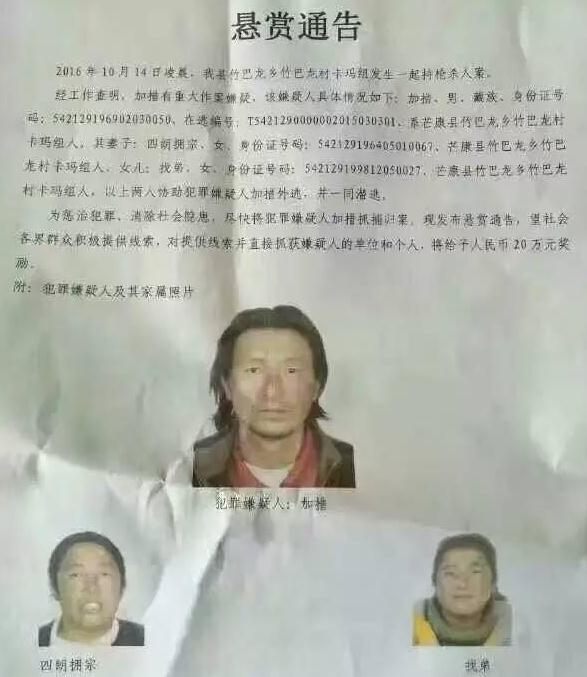 悬赏通告
2016年10月14日凌晨，我县竹巴龙乡竹巴龙村卡玛组发生一起持枪杀人案。
经工作查明，加措有重大作案嫌疑，该嫌疑人具体情况如下：加措、男、藏族、身份证号
码：542129196902030050、在逃编号：T5421290000002015030301、系芒康县竹巴龙乡竹巴龙村
卡玛组人，其妻子：四朗拥宗、女、身份证号码：542129196405010067、芒康县竹巴龙乡竹巴
龙村卡玛组人，女儿：找弟、女、身份证号码：542129199812050027、芒康县竹巴龙乡竹巴龙
村卡玛组人，以上两人协助犯罪嫌疑人加措外逃，并一同潜逃。
为惩治犯罪、消除社会隐患，尽快将犯罪嫌疑人加措抓捕归案，现发布悬赏通告，望社会
各界群众积极提供线索，对提供线索并直接抓获嫌疑人的单位和个人，将给予人民币20万元奖
励。
附：犯罪嫌疑人及其家属照片
犯罪嫌疑人：加措
四朗拥宗
找弟